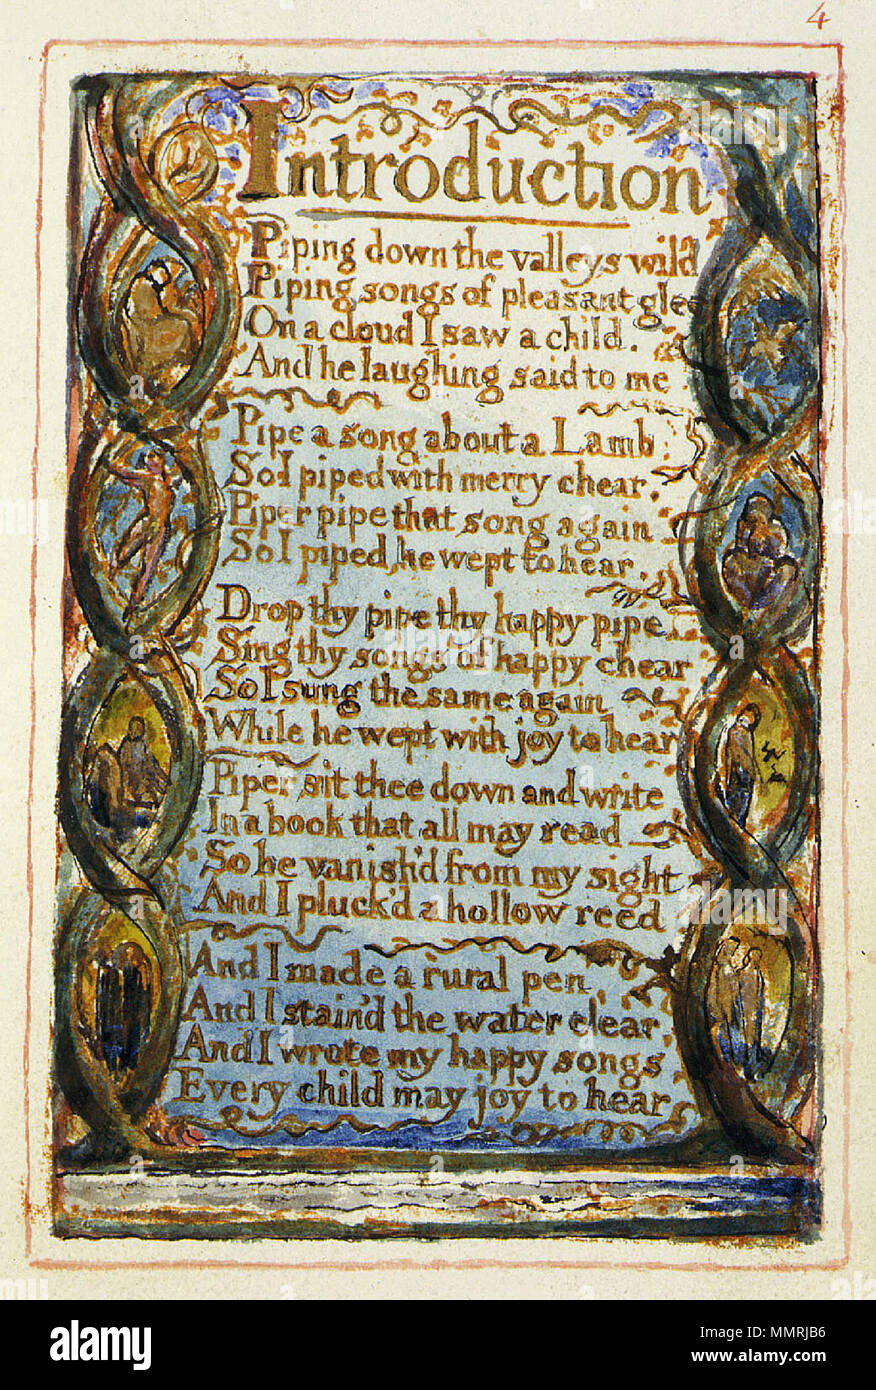 4
Introduction
Piping down the valleys wild
Piping songs of pleasant glee
On a cloud I saw a child.
And he laughing said to me
Pipe a song about a Lamb
So I piped with merry chear,
Piper pipe that song again
So I piped, he wept to hear.
Drop thy pipe thy happy pipe
Sing thy songs of happy chear
So I sung the same again
While he wept with joy to hear
Piper sit thee down and write
In a book that all may read
So he vanish'd from my sight
And I pluck'd a hollow reed
And I made a rural pen,
And I stain'd the water clear,
And I wrote my happy songs
Every child may joy to hear
alamy
Image ID: MMRJB6
www.alamy.com